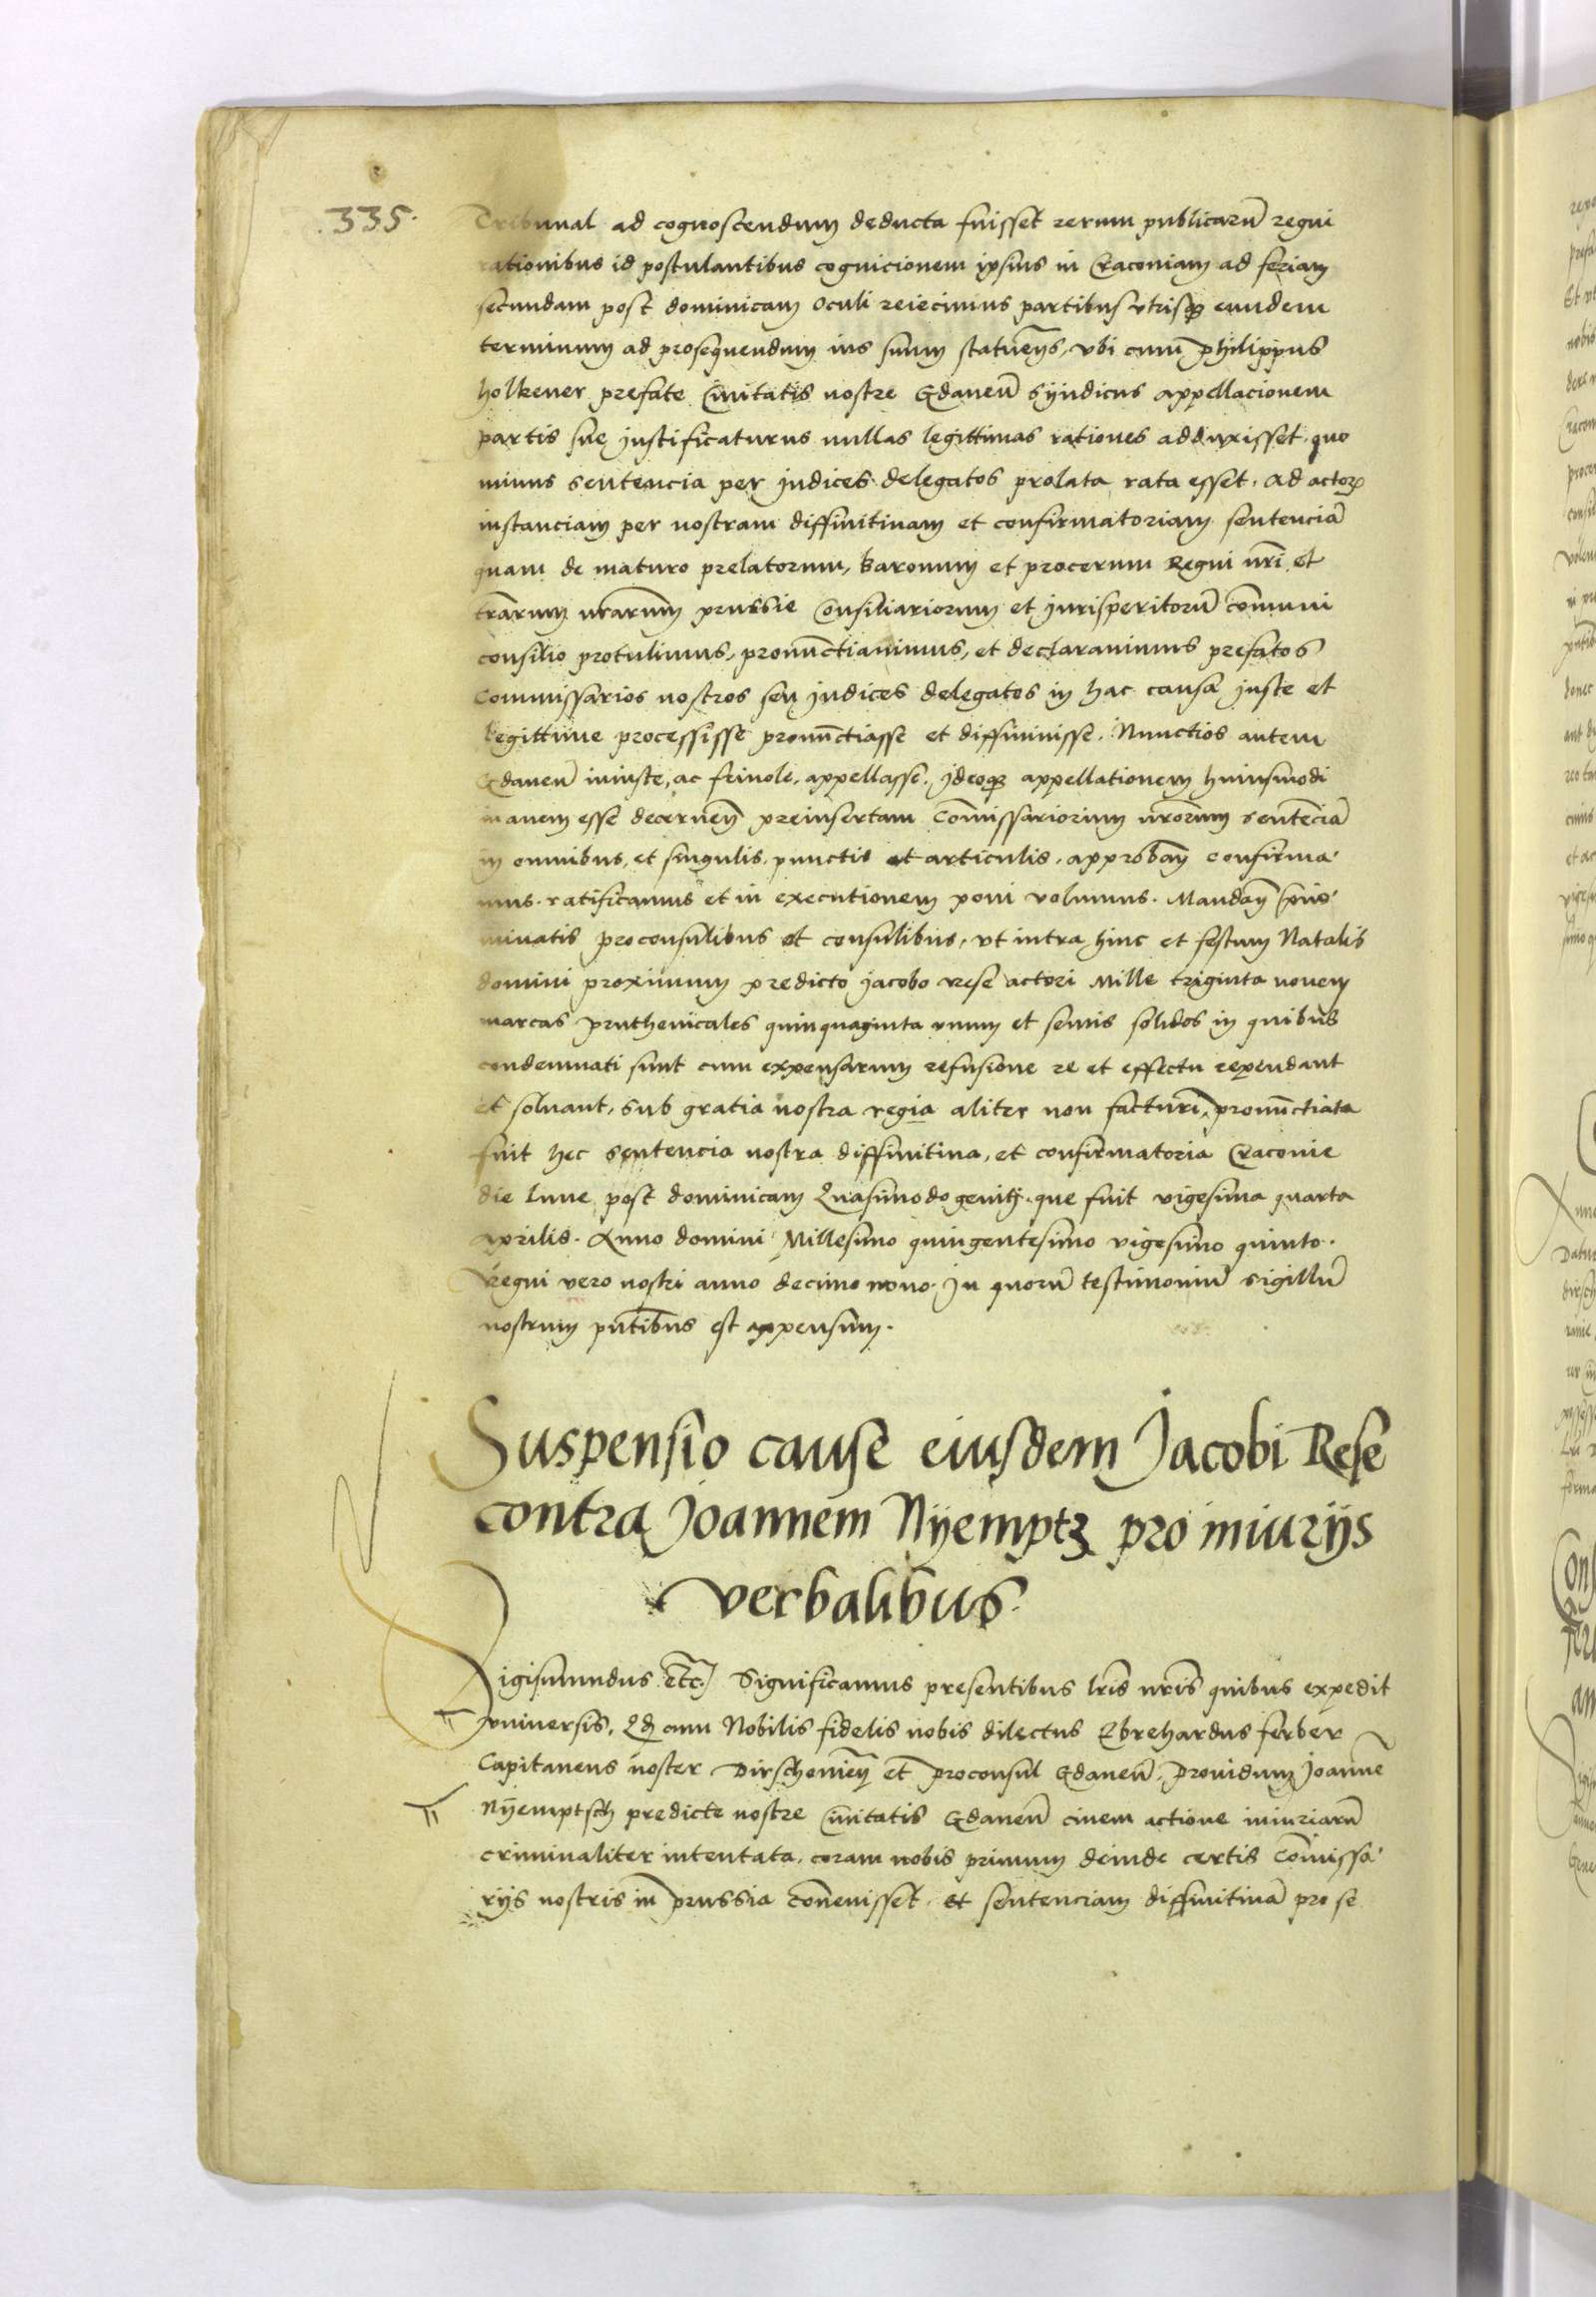 .335.
Tribunal ad cognoscendum deducta fuisset rerum publicarū regni
rationibus id postulantibus cognicionem ipsius in Craconiam ad feriam
secundam post dominicam Oculi reiecimus partibus vtrisqȝ eundem
terminum ad prosequendum ius suum statueñs, vbi cum Philippus
holkener prefate Ciuitatis nostre Gdaneñ Syndicus appellacionem
partis sue justificaturus nullas legittimas rationes adduxisset quo
minus sentencia per judices delegatos prolata rata esset. Ad actorꝝ
instanciam per nostram diffinitiuam et confirmatoriam sentenciā
quam de maturo prelatorum, baronum et procerum Regni nr̄i et
tr̄arum nr̄arum prussie Consiliariorum et jurisperitorū com̄uni
consilio protulimus, pronūctiauimus, et declarauimus prefatos
Commissarios nostros seu judices delegatos in hac causa juste et
legittime processisse pronūctiasse et diffiniuisse. Nunctios autem
Gdaneñ iniuste, ac friuole, appellasse. jdeoqȝ appellationem huiusmodi
inanem esse decerneñ preinsertam Com̄issariorum nr̄orum sentenciā
in omnibus, et singulis, punctis et articulis, approbañ confirma
mus. ratificamus et in executionem poni volumus. Mandañ preno
minatis proconsulibus et consulibus, vt intra hinc et festum Natalis
domini proximum predicto jacobo rese actori Mille triginta nouem
marcas pruthenicales quinquaginta vnum et semis solidos in quibus
condemnati sunt cum expensarum refusione re et effectu rependant
et soluant, sub gratia nostra regia aliter non facturi, pronūctiata
fuit hec sentencia nostra diffinitiua, et confirmatoria Craconie
die Lune post dominicam Quasimodo geniti. que fuit vigesima quarta
aprilis. Anno domini Millesimo quingentesimo vigesimo quinto.
Regni vero nostri anno decimo nono. In quorū testimoniū sigillū
nostrum pn̄tibus est appensum.
Suspensio cause eiusdem Jacobi Rese
contra Joannem Nyemptz pro iniurijs
verbalibus
Sigismundus etc. Significamus presentibus lr̄is nr̄is quibus expedit
vniuersis, Qd cum Nobilis fidelis nobis dilectus Ebrehardus ferber
Capitaneus noster Dirschouieñ et proconsul Gdaneñ, prouidum Joannē
Nyemptsch predicte nostre Ciuitatis Gdaneñ ciuem actione iniuriarū
criminaliter intentata, coram nobis primum deinde certis Com̄issa
rijs nostris in prussia con̄uenisset. Et sentenciam diffinitiuā pro se